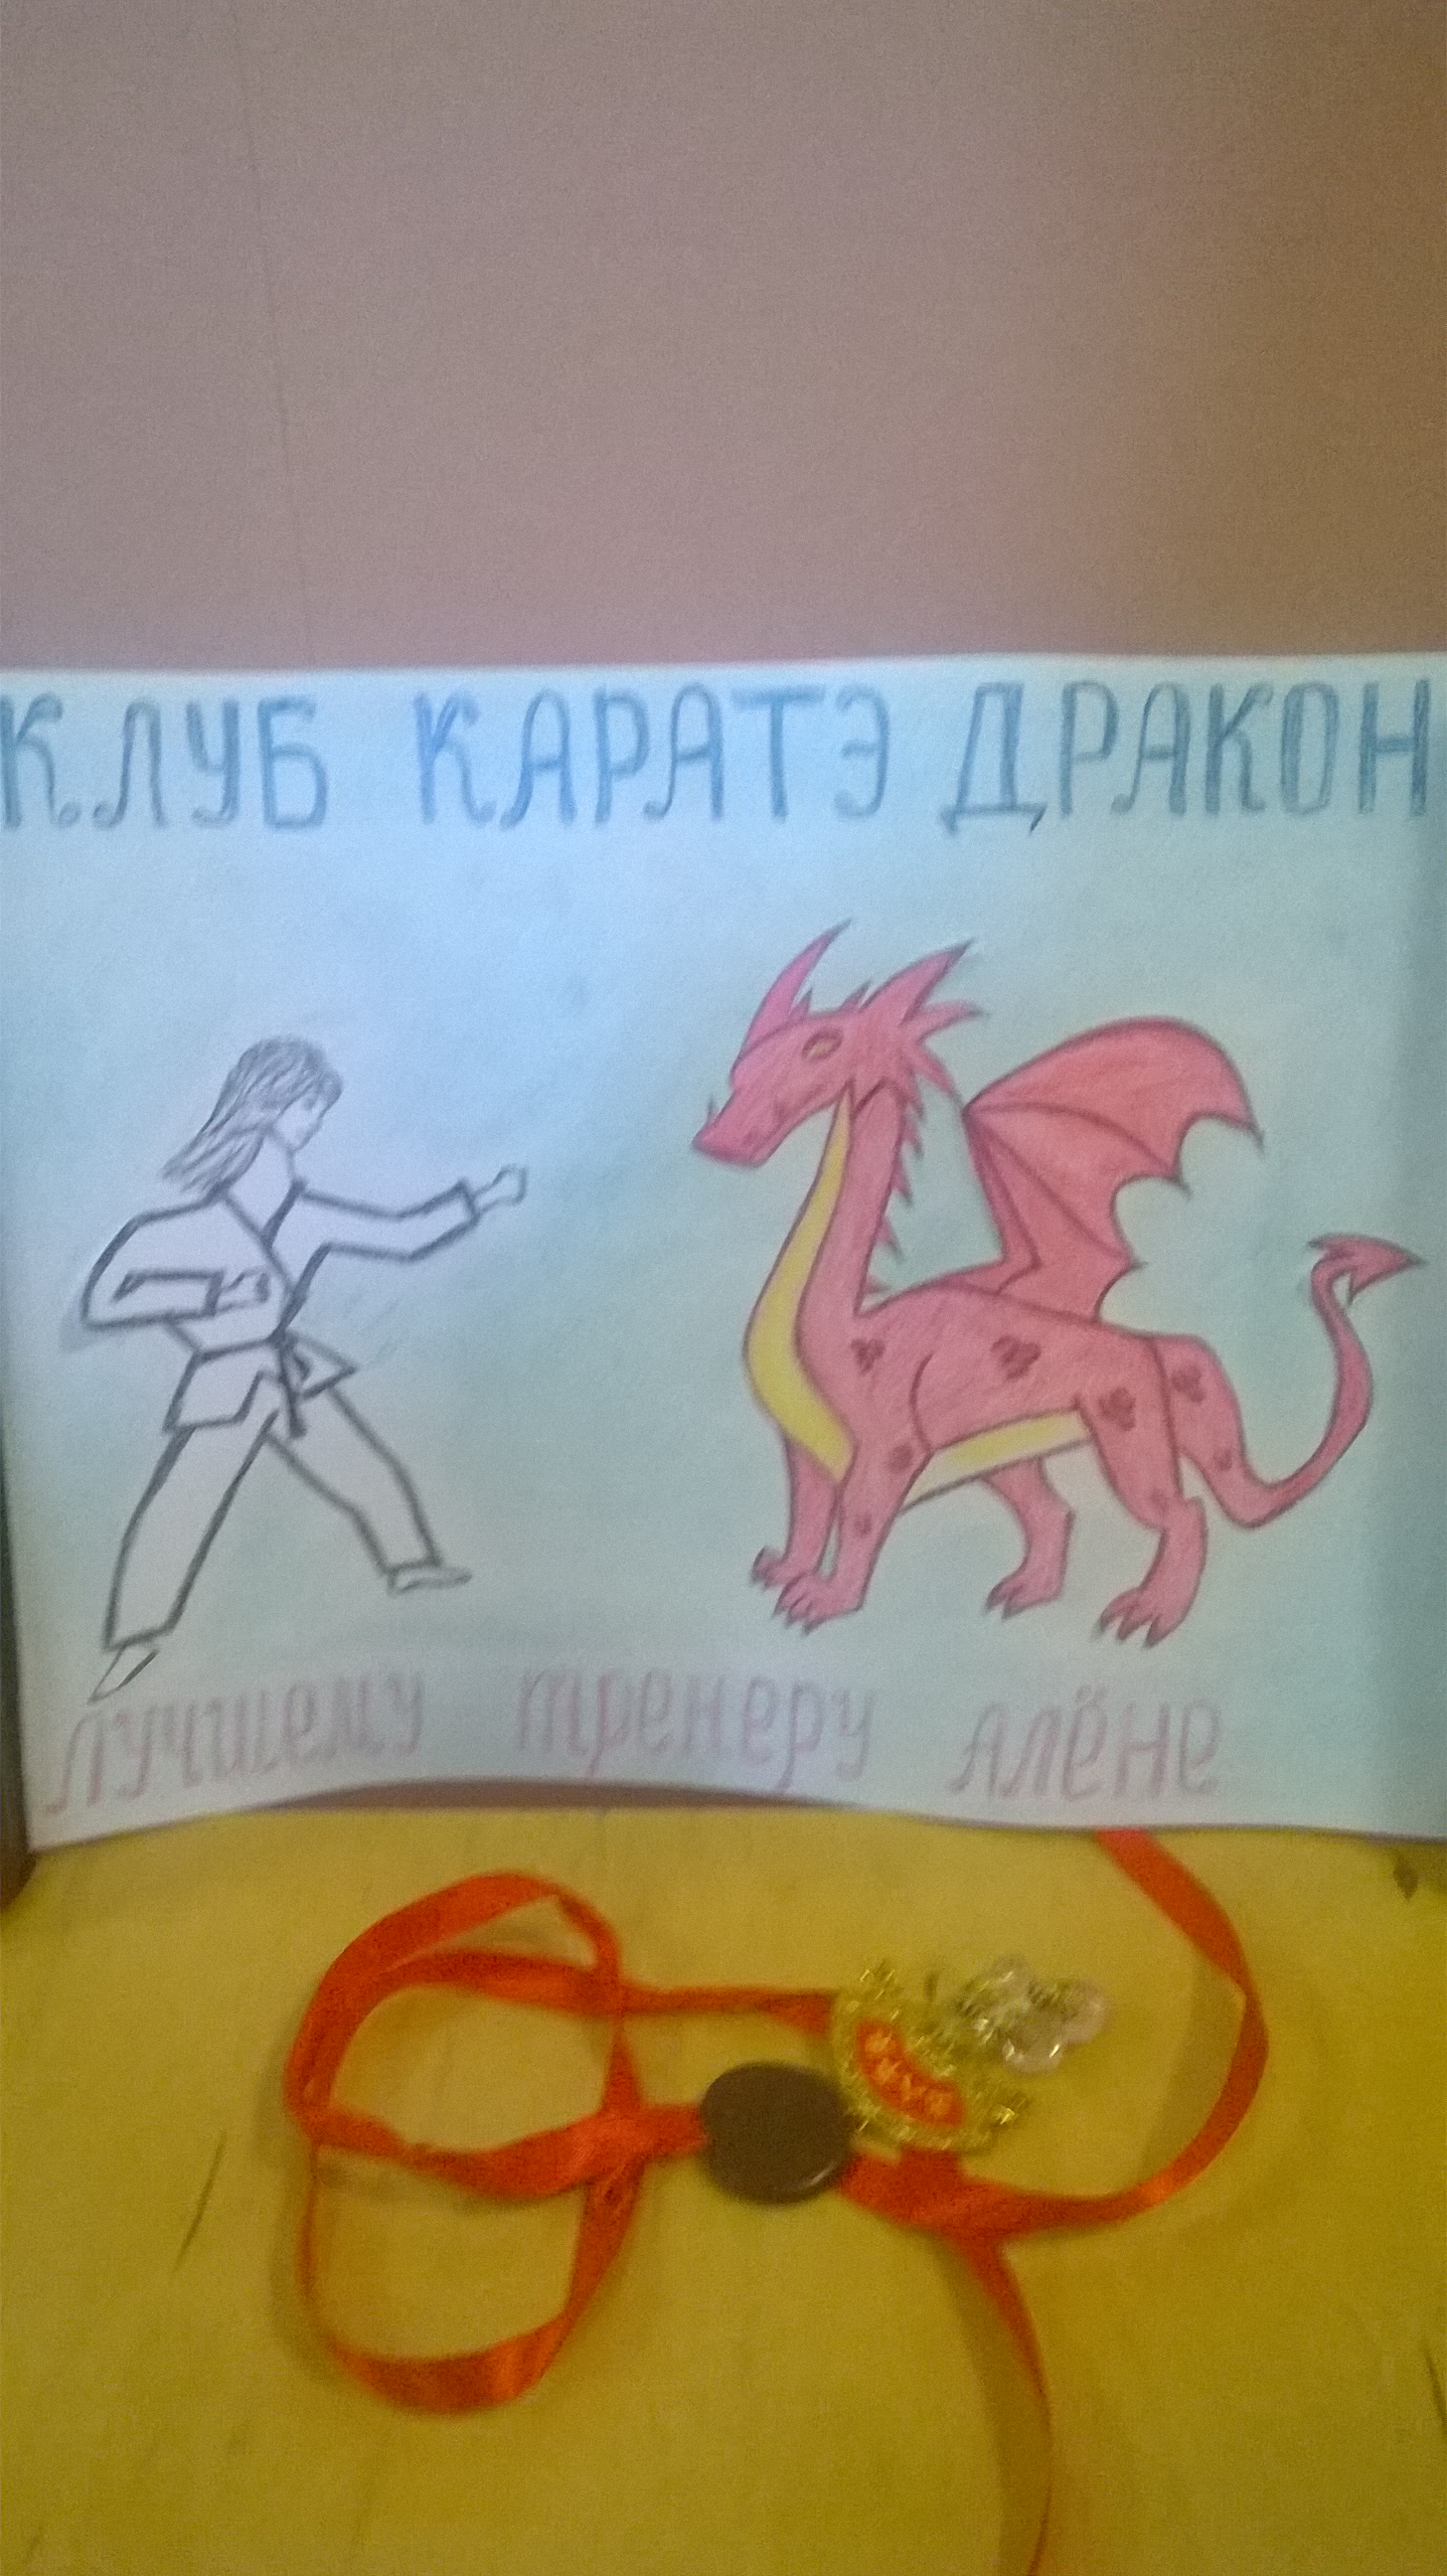 КЛУБ КАРАТЭ ДРАКОН
Лучшему тренеру Алёне